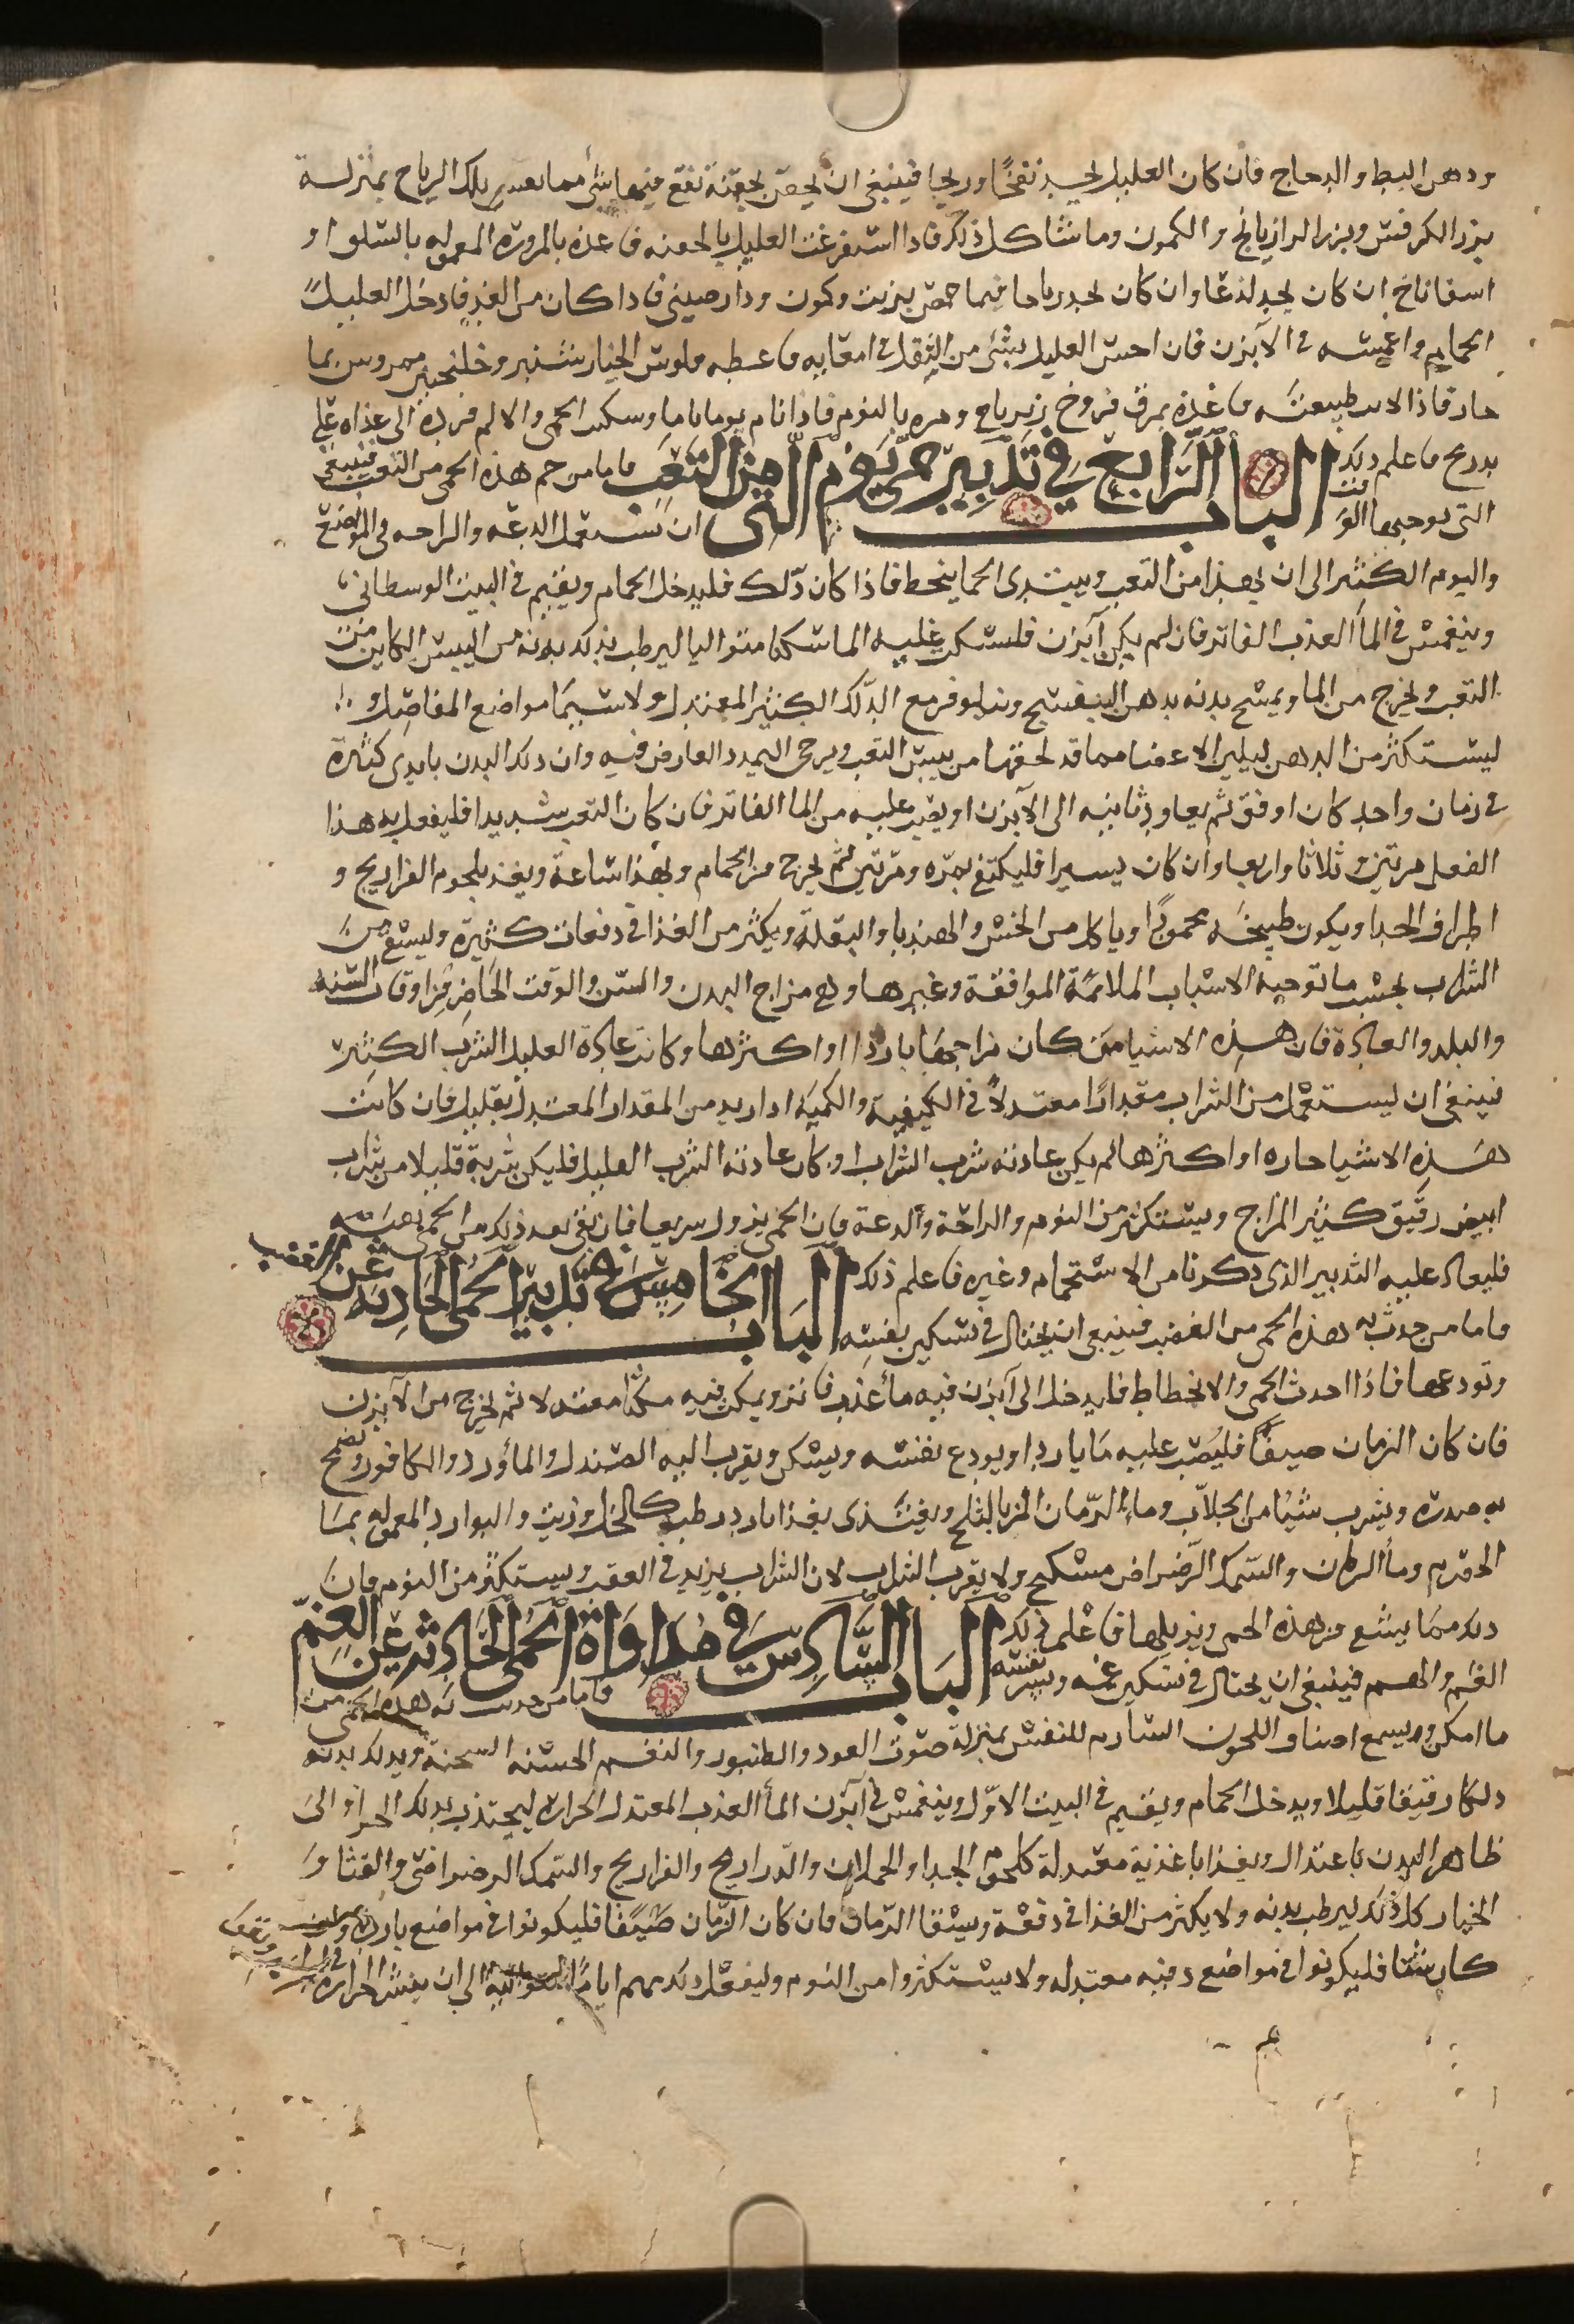 ودهن البط والدجاج فان كان العليل يجد نفخًا وريحا فينبغي ان يحقن بحقنة نقع فيها شئ مما يفش تلك الرياح بمنزلة
بزر الكرفس وبزر الرازيانج والكمون وما شاكل ذلك فاذا استفرغت العليل بالحقنه فاغذه بالمزوره المعموله بالسلق او
اسفاناخ ان كان يجد لذعًا وان كان يجد رياحا فبما حمص بزيت وكمون ودارصيني فاذا كان من الغد فادخل العليل
الحمام واغمسه في الآبزن فان احس العليل بشئ من الثقل في امعايه فاعطه فلوس الخيارشنبر وخلنجبين ممروس بما
حار فاذا لانت طبيعته فاغذه بمرق فروخ زيرباج ومره بالنوم فاذا نام يوما تاما وسكنت الحمى والالم فرده الى غذاه على
تدريج فاعلم ذلك الباب الرابع في تدبير حمى يوم من التعب فاما من حم هذه الحمى من التعب فينبغي
التي توجبها التي ان يستعمل الدعه والراحه في الموضع
واليوم الكثير الى ان يهدا من التعب ويبتدى الحما ينحط فاذا كان ذلك فليدخل الحمام ويقيم في البيت الوسطاني
وينغمس في الما العذب الفاتر فان لم يكن آبزن فليسكب عليه الما سكبا متواليا ليرطب بذلك بدنه من اليبس الكاين من
التعب ويخرج من الما ويمسح بدنه بدهن البنفسج ونيلوفر مع الدلك الكثير المعتدل ولا سيما مواضع المفاصل و
ليستكثر من الدهن ليلين الاعضا مما قد لحقها من يبس التعب ويرخى التمدد العارض فيه وان دلك البدن بايدي كثيرة
في زمان واحد كان اوفق ثم يعاود ثانيه الى الآبزن او يصب عليه من الما الفاتر فان كان التعب شديدا فليفعل به هذا
الفعل مرتين وثلاثا واربعا وان كان يسيرا فليكتفي بمره ومرتين ثم يخرج من الحمام ويهدا ساعة ويغذ بلحوم الفراريج و
اطراف الجدا ويكون طبيخه محمودًا وياكل من الخس والهندبا والبقلة ويكثر من الغذا في دفعات كثيرة وليسقي من
الشراب بحسب ما توجبه الاسباب الملائمة الموافقة وغيرها وهي مزاج البدن والسن والوقت الحاضر من اوقات السنة
والبلد والعادة فان هذه الاشيا متى كان مزاجها باردا او اكثرها وكانت عادة العليل الشرب الكثير
فينبغي ان يستعمل من الشراب مقدارًا معتدلًا في الكيفية والكمية او ازيد من المقدار المعتدل بقليل فان كانت
هذه الاشيا حاره او اكثرها لم يكن عادته شرب الشراب او كان عادته الشرب القليل فليكن شربة قليلا من شراب
ابيض رقيق كثير المزاج ويستكثر من النوم والراحة والدعة فان الحمى يزول سريعا فان بقي بعد ذلك من الحمى بقية
فليعاد عليه التدبير الذي ذكرنا من الاستحمام وغيره فاعلم ذلك الباب الخامس في تدبير الحمى الحادثه عن الغضب
فاما من حدث به هذه الحمى من الغضب فينبغي ان يحتال في تسكين نفسه
وتودعها فاذا احدث الحمى والانحطاط فليدخل الى آبزن فيه مأ عذب فاتر ويمكث فيه مكثا معتدلا ثم يخرج من الآبزن
فان كان الزمان صيفًا فليصب عليه ما باردا ويودع نفسه ويسكن ويقرب اليه الصندل والمأورد والكافور وينضح
به صدره ويشرب شيئا من الجلاب وماء الرمان المز بالثلج ويغتذى بغذا بارد رطب كالخل وزيت والبوارد المعموله بما
الحصرم وما الرمان والسمك الرضراض مسكبج ولا يقرب الشراب لان الشراب يزيد في الغضب ويستكثر من النوم فان
ذلك مما يمنع من هذه الحمى ويزيلها فاعلم ذلك الباب السادس في مداواة الحمى الحادثه عن الغم
فاما من حدث به هذه الحمى من
الغم والهم فينبغي ان يحتال في تسكين غمه ويسر نفسه
ما امكن ويسمع اصناف اللحون السارة للنفس بمنزلة صوت العود والطنبور والنغم الحسنه السحنة ويدلك بدنه
دلكا رقيقا قليلا ويدخل الحمام ويقيم في البيت الاول وينغمس في آبزن المأ العذب المعتدل الحرارة ليجتذب بذلك الحرارة الى
ظاهر البدن باعتدال ويغذا باغذية معتدلة كلحوم الجدا والحملان والدراريج والفراريج والسمك الرضراضى والقثا و
الخيار كل ذلك ليرطب بدنه ولا يكثر من الغذا في دفعة ويسقا الرمان فان كان الزمان صيفًا فليكونوا في مواضع باردة
كان شتا فليكونوا في مواضع دفيه معتدله ولا يستكثروا من النوم وليفعل ذلك بهم اياما متواليه الى ان يفش الحرارة